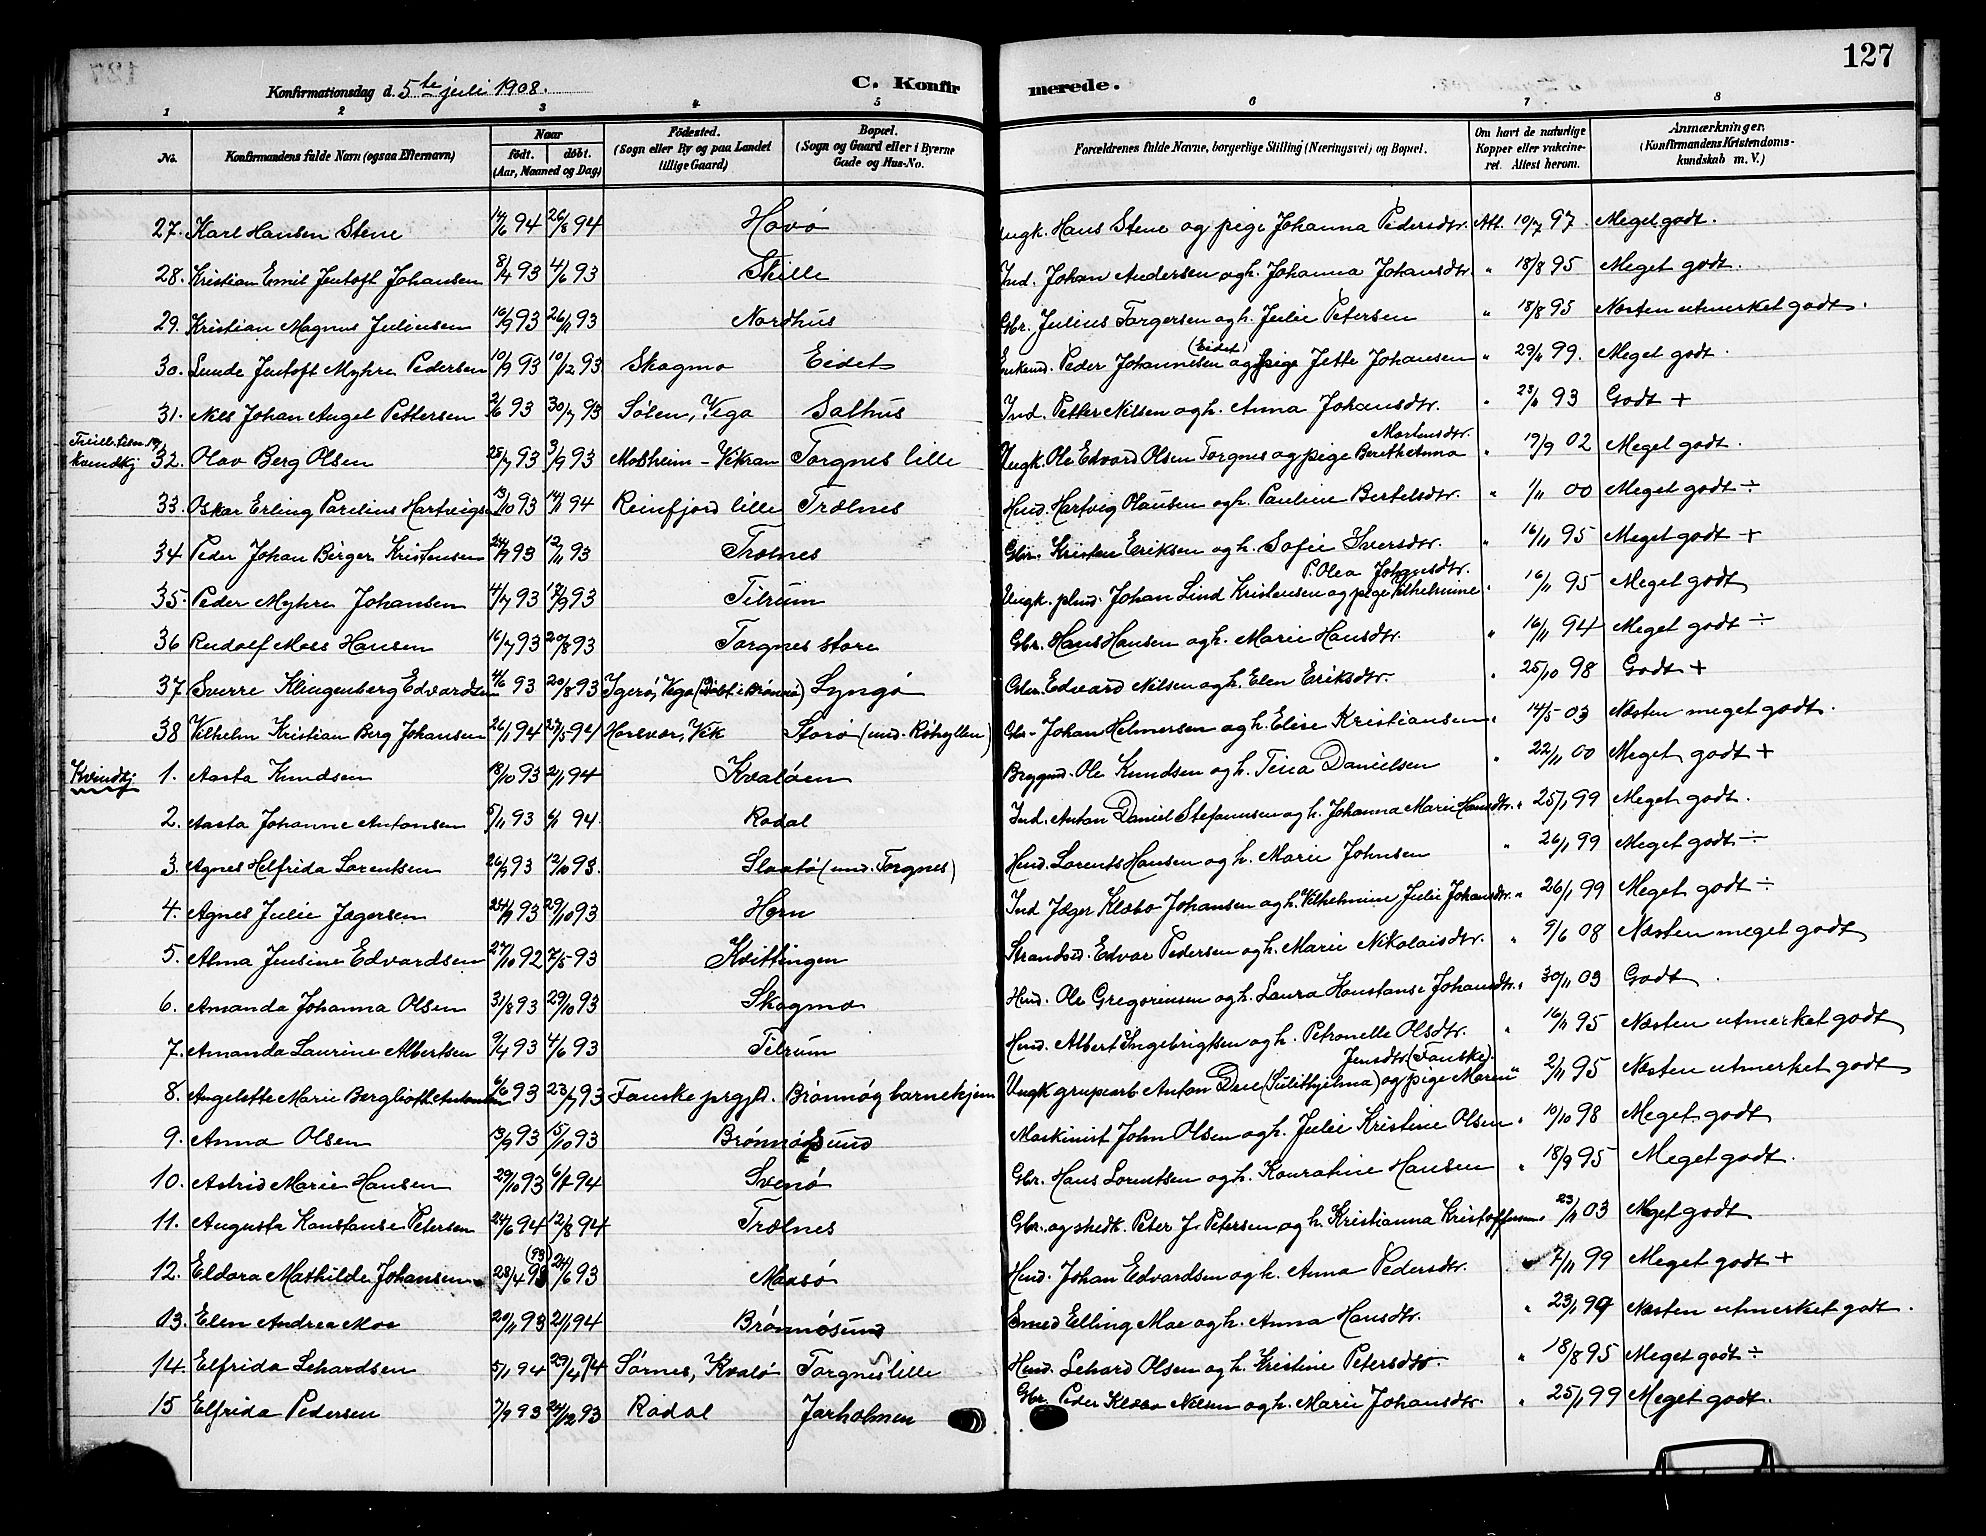 127
Konfirmationsdag d. 5te juli 1908.
C. Konfirmerede.
1 2 3 4 5 6 7 8
No. Konfirmandens fulde Navn (ogsaa Efternavn) Naar født. døbt. (Aar, Maaned og Dag) Fødested. (Sogn eller By og paa Landet tillige Gaard) Bopæl. (Sogn og Gaard eller i Byerne Gade og Hus-No. Forældrenes fulde Navne, borgerlige Stilling (Næringsvei) og Bopæl. Om havt de naturlige Kopper eller vakcineret. Attest herom. Anmærkninger. (Konfirmandens Kristendomskundskab m. V.)
27. Karl Hansen Stene 14/6 94 26/8 94 Havø Ungk. Hans Stene og pige Johanna Pedersdtr. Att. 10/7 97. Meget godt.
28. Kristian Emil Jentoft Johansen 8/4 93 4/6 93 Skille Ind. Johan Andersen og h. Johanna Johansdtr. " 18/8 95 Meget godt.
29. Kristian Magnus Juliusen 16/9 93 26/11 93 Nordhus Gbr. Julius Torgersen og h. Julie Petersen " 18/8 95 Næsten utmerket godt.
30. Lunde Jentoft Myhre Pedersen 10/9 93 10/12 93 Skogmo Eidet Enkemd. Peder Johannesen (Eidet) og pige Jette Johansen " 29/11 99. Meget godt.
31. Nils Johan Angel Pettersen 2/6 93 30/7 93 Sølen, Vega Salhus Ind. Petter Nilsen og h. Anna Johansdtr. " 93 Godt +
Kvindkj 32. Olav Berg Olsen 25/7 93 3/9 93 Mosheim - Vikran Torgnes lille Ungk. Ole Edvard Olsen Torgnes og pige Berethe Anna Mortensdtr. " 19/9 02 Meget godt.
33. Oskar Erling Parelius Hartvigsen 13/10 93 14/1 94 Reinfjord lille Trælnes Hmd. Hartvig Olausen og h. Pauline Bertelsdtr. " 1/11 00 Meget godt ÷
34 Peder Johan Birger Kristensen 24/9 93 12/11 93 Trælnes Gbr. Kristen Eriksen og h. Sofie Iversdtr. " 16/11 95 Meget godt +
35. Peder Myhre Johansen 4/7 93 17/9 93 Tilrum Ungk. plmd. Johan Lind Kristensen og pige Vilhelmine P. Olea Johansdtr. " 16/11 95 Meget godt
36 Rudolf Moes Hansen 16/7 93 20/8 93 Torgnes store Gbr. Hans Hansen og h. Marie Hansdtr. " 16/11 94 Meget godt ÷
37 Sverre Klingenberg Edvardsen 4/6 93 20/8 93 Igerø, Vega (Døbt i Brønnø) Lyngø Gbr. Edvard Nilsen og h. Elen Eriksdtr. " 25/10 98 Godt +
38 Vilhelm Kristian Berg Johansen 26/1 94 27/5 94 Horsvær, Vik Storø (und. Røhyllen) Gbr. Johan Helmersen og h. Elise Kristiansen " 14/5 03 Næsten meget godt.
Kvindkj 1. Aasta Knudsen 13/10 93 2/1 94 Kvaløen Bryggmd. Ole Knudsen og h. Tina Danielsen " 22/11 00 Meget godt +
2. Aasta Johanne Antonsen 5/11 93 6/1 94. Rødal Ind. Anton Daniel Stefanusen og h. Johanna Marie Hansdtr. " 25/1 99 Meget godt.
3. Agnes Helfrida Lorentsen 26/9 93 12/10 93. Slaatø (und. Torgnes) Hmd. Lorents Hansen og h. Marie Johnsen " 26/1 99 Meget godt ÷
4. Agnes Julie Jægersen 24/9 93 29/10 93 Horn Ind Jæger Klæbo Johansen og h. Vilhelmine Julie Johansdtr. " 26/1 99 Meget godt ÷
5. Alma Jensine Edvardsen 27/10 92 7/5 93 Kvittingen Strandsd. Edvar Pedersen og h. Marie Nikolaisdtr. " 9/6 08 Næsten meget godt
6. Amanda Johanna Olsen 31/8 93 29/10 93 Skogmo Hmd. Ole Gregoriusen og h. Laura Konstanse Johansdtr. " 30/11 03 Godt.
7. Amanda Laurine Albertsen 9/4 93 4/6 93 Tilrum Hmd. Albert Ingebrigtsen og h. Petronelle Olsdtr. " 16/11 95 Næsten utmerket godt
8. Angelette Marie Bergliot Antonsen 6/6 93 23/7 93 Fauske prgjld. Brønnøy barnehjem Ungk grubearb Anton Due (Sulithjelma) og pige Maren Jensdtr. (Fauske). " 2/11 95 Næsten utmerket godt
9. Anna Olsen 13/9 93 15/10 93 Brønnøysund Maskinist John Olsen og h. Julie Kristine Olsen " 10/10 98 Meget godt
10. Astrid Marie Hansen 29/10 93 94 Svenø Gbr. Hans Lorentsen og h. Konradine Hansen " 18/9 95 Meget godt.
11. Augusta Konstanse Petersen 24/6 94 12/8 94 Trælnes Gbr. og skedk. Peter J. Petersen og h. Kristianna Kristoffersen " 23/11 03 Meget godt
12. Eldora Mathilde Johansen 28/4 93 (93) 24/6 93 Maasø Hmd. Johan Edvardsen og h. Anna Pedersdtr. " 7/11 99 Meget godt +
13. Elen Andrea Moe 20/11 93 21/1 94 Brønnøsund Smed Elling Moe og h. Anna Hansdtr. " 23/1 99 Næsten utmerket godt.
14. Elfrida Lehardsen 5/1 94 29/4 94 Sørnes, Kvalø Torgnes lille Hmd. Lehard Olsen og h. Kristine Petersdtr. " 18/8 95 Meget godt ÷
15 Elfrida Pedersen 7/9 93 24/12 93 Rødal Jarholmen Gbr. Peder Klæbo Nilsen og h. Marie Johansdtr. " 25/1 99 Meget godt.